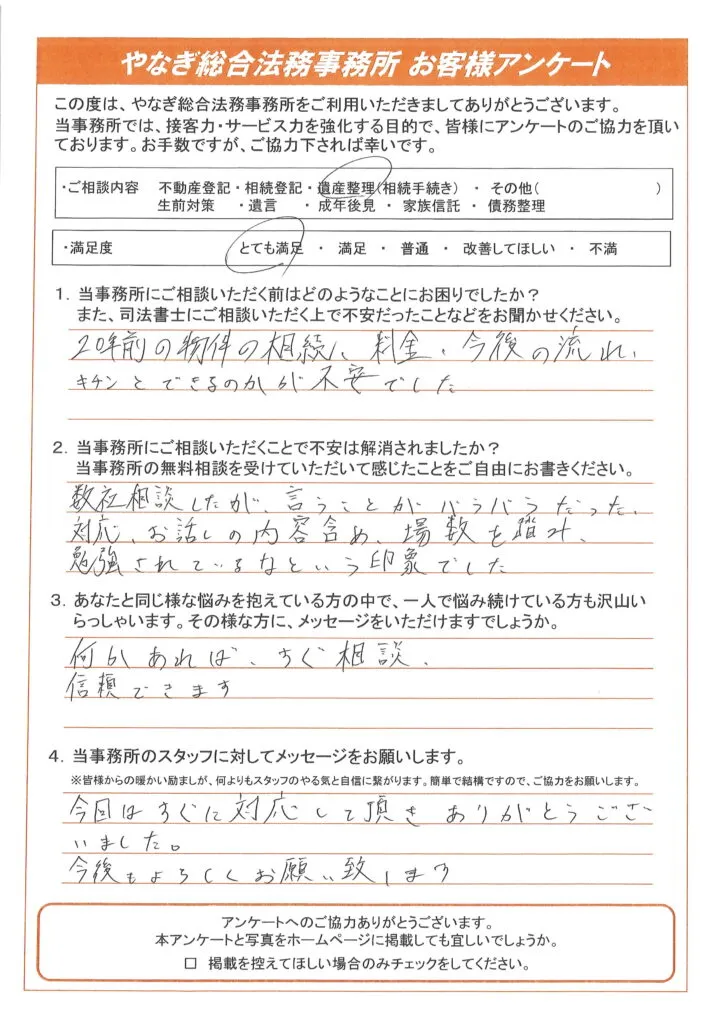 やなぎ総合法務事務所 お客様アンケート
この度は、やなぎ総合法務事務所をご利用いただきましてありがとうございます。
当事務所では、接客力・サービス力を強化する目的で、皆様にアンケートのご協力を頂い
ております。お手数ですが、ご協力下されば幸いです。
・ご相談内容 不動産登記・相続登記・遺産整理(相続手続き) ・ その他( )
生前対策 ・遺言 ・成年後見 ・ 家族信託 ・ 債務整理
・満足度 とても満足 ・ 満足 ・ 普通 ・ 改善してほしい ・ 不満
1. 当事務所にご相談いただく前はどのようなことにお困りでしたか?
また、司法書士にご相談いただく上で不安だったことなどをお聞かせください。
20年前の物件の相続、料金、今後の流れ、
キチンとできるのかが不安でした
2. 当事務所にご相談いただくことで不安は解消されましたか?
当事務所の無料相談を受けていただいて感じたことをご自由にお書きください。
数社相談したが、言うことがバラバラだった、
対応、お話しの内容含め、場数を踏み、
勉強されているなという印象でした
3. あなたと同じ様な悩みを抱えている方の中で、一人で悩み続けている方も沢山い
らっしゃいます。その様な方に、メッセージをいただけますでしょうか。
何かあれば、すぐ相談、
信頼できます
4. 当事務所のスタッフに対してメッセージをお願いします。
※皆様からの暖かい励ましが、何よりもスタッフのやる気と自信に繋がります。簡単で結構ですので、ご協力をお願いします。
今回はすぐに対応して頂きありがとうござ
いました。
今後もよろしくお願い致します
アンケートへのご協力ありがとうございます。
本アンケートと写真をホームページに掲載しても宜しいでしょうか。
□ 掲載を控えてほしい場合のみチェックをしてください。